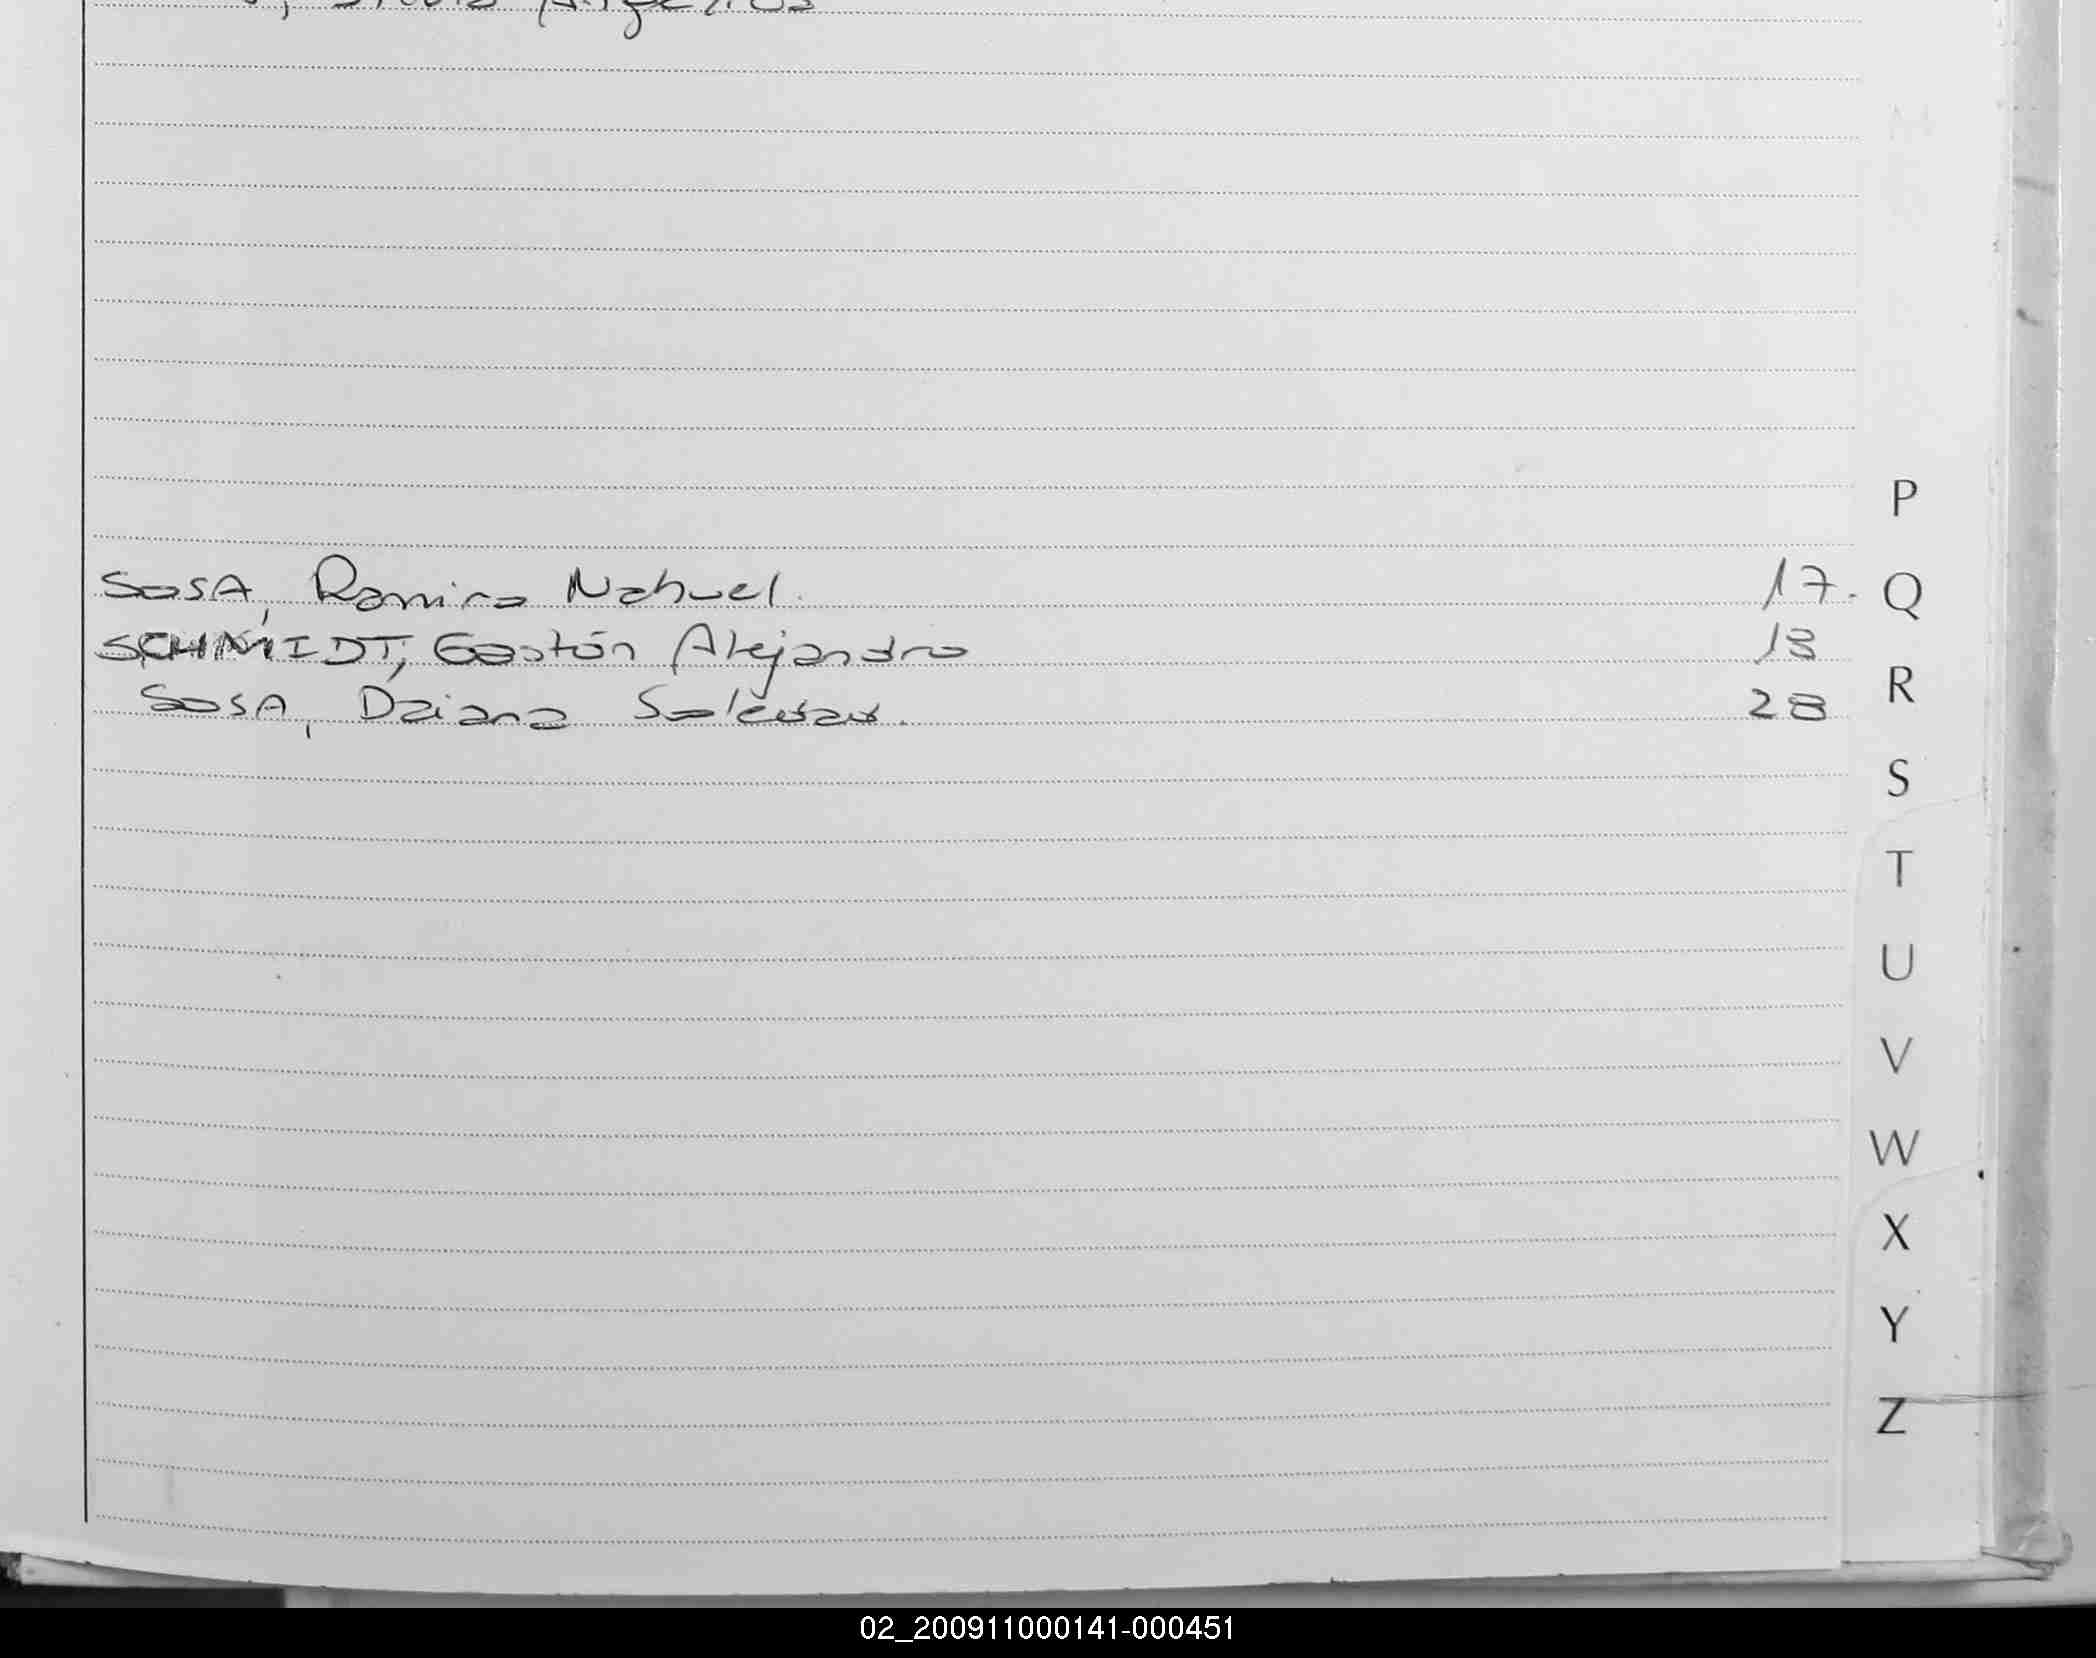 SOSA, Ramiro Nahuel. 17.
SCHMIDT, Gastón Alejandro 18
SOSA, Daiana Soledad. 28
P
Q
R
S
T
U
V
W
X
Y
Z
02_200911000141-000451